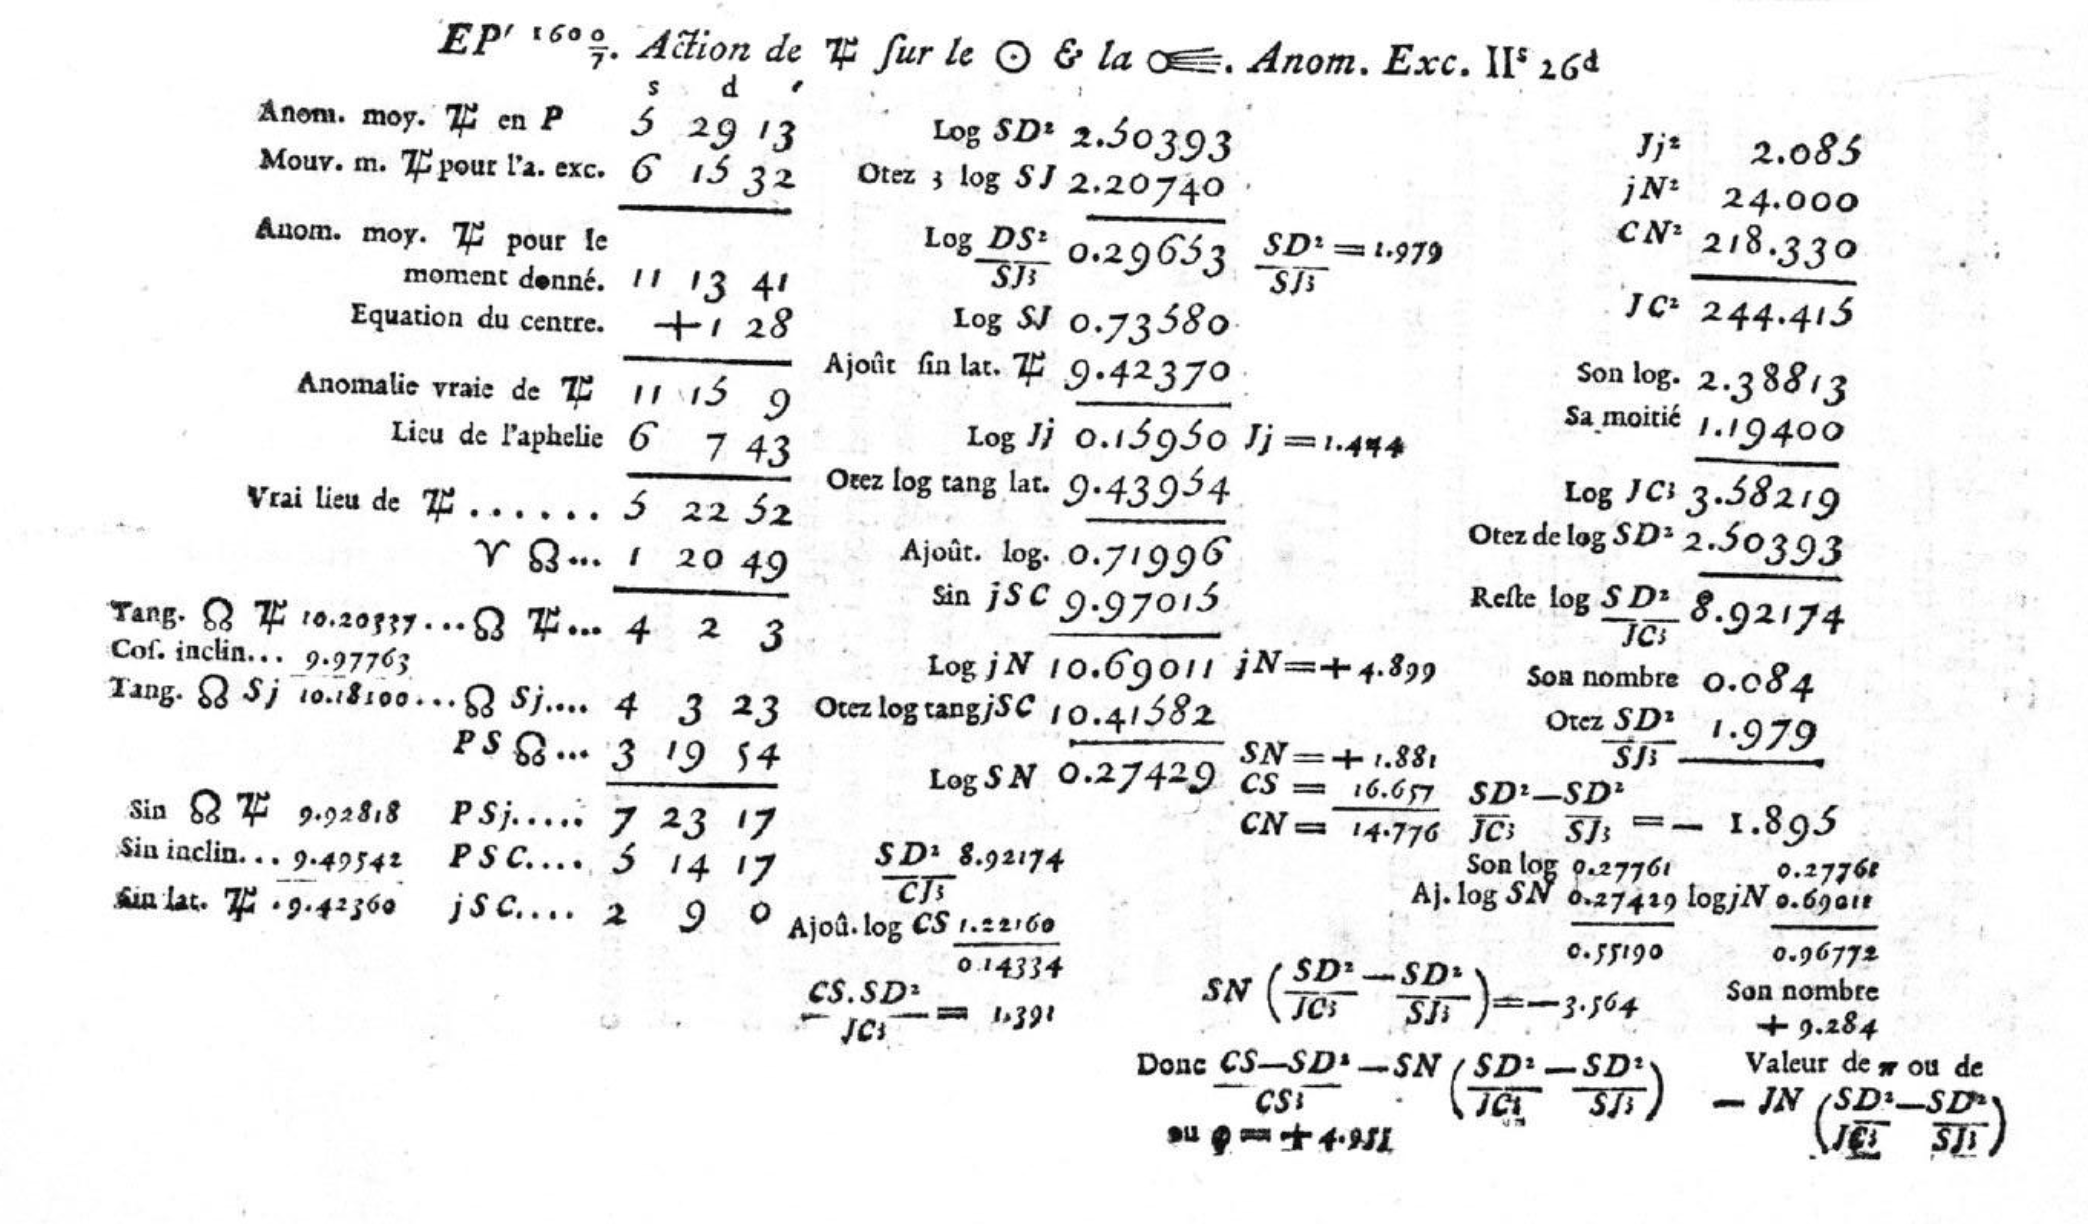 EP′ 1600/7. Action de ♃ ſur le ☉ & la ☄. Anom. Exc. IIˢ 26ᵈ
s d ′
Anom. moy. ♃ en P 5 29 13
Mouv. m. ♃ pour l'a. exc. 6 15 32
Anom. moy. ♃ pour le
moment donné. 11 13 41
Equation du centre. +1 28
Anomalie vraie de ♃ 11 15 9
Lieu de l'aphelie 6 7 43
Vrai lieu de ♃ ...... 5 22 52
♈ ☊... 1 20 49
Tang. ☊ ♃ 10.20337...☊ ♃... 4 2 3
Coſ. inclin... 9.97763
Tang. ☊ Sj 10.18100...☊ Sj.... 4 3 23
PS ☊... 3 19 54
Sin ☊ ♃ 9.92818 PSj..... 7 23 17
Sin inclin... 9.49542 PSC.... 5 14 17
Sin lat. ♃ .9.42360 jSC.... 2 9 0
Log SD² 2.50393
Otez 3 log SJ 2.20740
Log DS²/SJ³ 0.29653 SD²/SJ³ = 1.979
Log SJ 0.73580
Ajoût ſin lat. ♃ 9.42370
Log Jj 0.15950 Jj = 1.444
Otez log tang lat. 9.43954
Ajoût. log. 0.71996
Sin jSC 9.97015
Log jN 10.69011 jN = + 4.899
Otez log tang jSC 10.41582
Log SN 0.27429 SN = + 1.881
CS = 16.657
CN = 14.776
SD²/CJ³ 8.92174
Ajoû. log CS 1.22160
0.14334
CS.SD²/JC³ = 1.391
Jj² 2.085
jN² 24.000
CN² 218.330
JC² 244.415
Son log. 2.38813
Sa moitié 1.19400
Log JC³ 3.58219
Otez de log SD² 2.50393
Reſte log SD²/JC³ 8.92174
Son nombre 0.084
Otez SD²/SJ³ 1.979
SD²/JC³ — SD²/SJ³ = — 1.895
Son log 0.27761 0.27761
Aj. log SN 0.27429 log jN 0.69011
0.55190 0.96772
SN (SD²/JC³ — SD²/SJ³) = — 3.564 Son nombre
+ 9.284
Donc CS—SD²/CS³ — SN (SD²/JC³ — SD²/SJ³) Valeur de π ou de
— JN (SD²/JC³ — SD²/SJ³)
ou φ = + 4.951